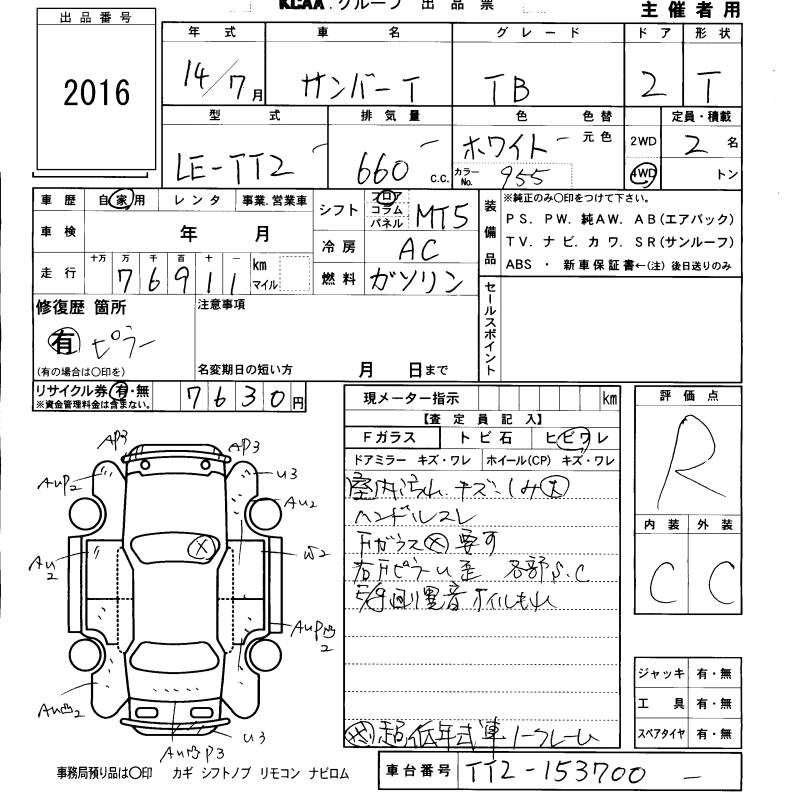 KCAA.グループ 出品票
主催者用
出品番号
2016
年式 車名 グレード ドア 形状
14/7月 サンバーT TB 2 T
型式 排気量 色 色替 定員・積載
LE-TT2 660 c.c. ホワイト 元色 2WD 2名
カラーNo. 955 4WD トン
車歴 自家用 レンタ 事業.営業車
シフト フロア コラム パネル MT5
車検 年 月
冷房 AC
走行 十万 万 千 百 十 一
76911 km マイル
燃料 ガソリン
装備品
※純正のみ○印をつけて下さい。
PS. PW. 純AW. AB(エアバック)
TV. ナビ. カワ. SR(サンルーフ)
ABS ・ 新車保証書←(注) 後日送りのみ
修復歴 箇所
有 ピラー
(有の場合は○印を)
注意事項
名変期日の短い方 月 日まで
セールスポイント
リサイクル券 有・無
※資金管理料金は含まない。
7630円
現メーター指示 km
【査定員記入】
Fガラス トビ石 ヒビワレ
ドアミラー キズ・ワレ ホイール(CP) キズ・ワレ
室内汚れ.キズ.しみ大
ハンドルスレ
Fガラス✕要す
右Fピラーu歪 各部S.C
異音オイルもれ
超低年式車ノークレーム
評価点
R
内装 外装
C C
AP3 AP3
AuP2 U3
Au2
Au2 W2
AuP凹2
Au凹2 U3
Au凹P3
ジャッキ 有・無
工具 有・無
スペアタイヤ 有・無
事務局預り品は○印 カギ シフトノブ リモコン ナビロム
車台番号 TT2-153700